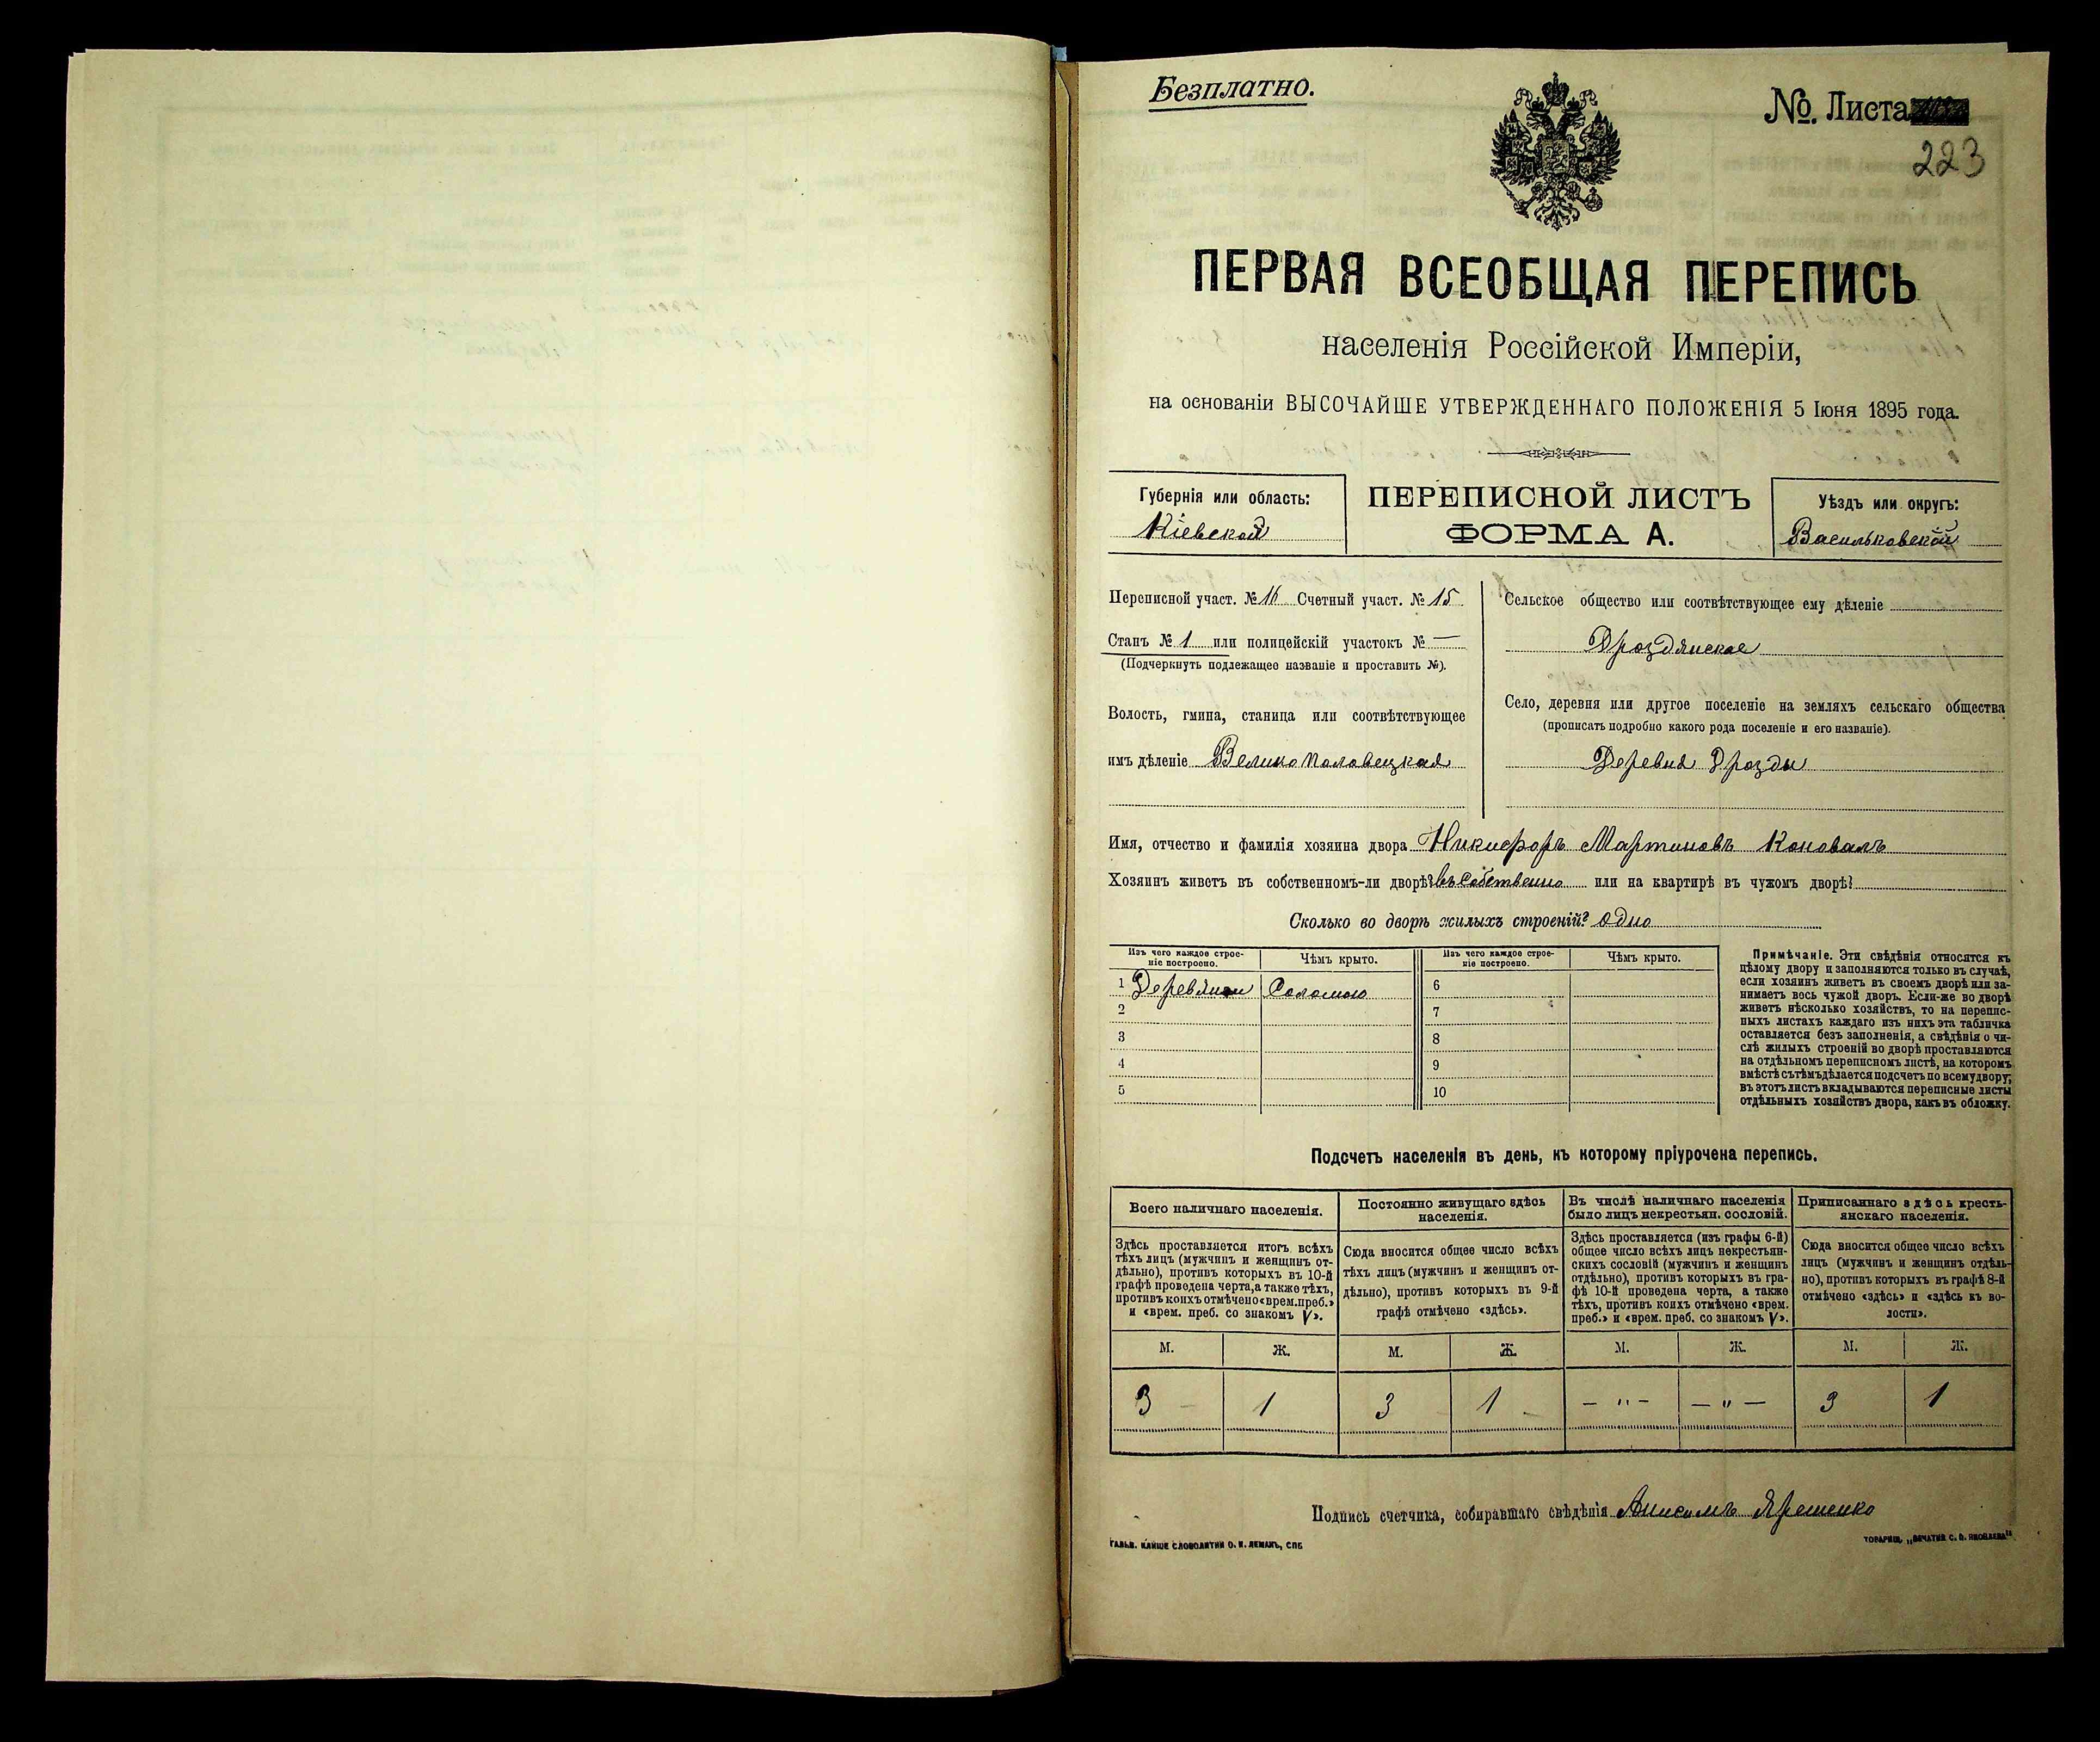 Безплатно.
№. Листа
223
ПЕРВАЯ ВСЕОБЩАЯ ПЕРЕПИСЬ
населенія Россійской Имперіи,
на основаніи ВЫСОЧАЙШЕ УТВЕРЖДЕННАГО ПОЛОЖЕНІЯ 5 Іюня 1895 года.
Губернія или область:
Кіевская
ПЕРЕПИСНОЙ ЛИСТЪ
ФОРМА А.
Уѣздъ или округъ:
Васильковскій
Переписной участ. № 16 Счетный участ. № 15
Станъ № 1 или полицейскій участокъ № —
(Подчеркнуть подлежащее названіе и проставить №).
Волость, гмина, станица или соотвѣтствующее
имъ дѣленіе Великополовецкая
Сельское общество или соотвѣтствующее ему дѣленіе
Дроздянское
Село, деревня или другое поселеніе на земляхъ сельскаго общества
(прописать подробно какого рода поселеніе и его названіе).
Деревня Дрозды
Имя, отчество и фамилія хозяина двора Никифоръ Мартиновъ Коновалъ
Хозяинъ живетъ въ собственномъ-ли дворѣ? въ собственно или на квартирѣ въ чужомъ дворѣ?
Сколько во дворѣ жилыхъ строеній? одно
Изъ чего каждое строе-
ніе построено.
Чѣмъ крыто.
Изъ чего каждое строе-
ніе построено.
Чѣмъ крыто.
1 Деревянои Соломою 6
2 7
3 8
4 9
5 10
Примѣчаніе. Эти свѣдѣнія относятся къ
цѣлому двору и заполняются только въ случаѣ,
если хозяинъ живетъ въ своемъ дворѣ или за-
нимаетъ весь чужой дворъ. Если-же во дворѣ
живетъ нѣсколько хозяйствъ, то на перепис-
ныхъ листахъ каждаго изъ нихъ эта табличка
оставляется безъ заполненія, а свѣдѣнія о чи-
слѣ жилыхъ строеній во дворѣ проставляются
на отдѣльномъ переписномъ листѣ, на которомъ
вмѣстѣ съ тѣмъ дѣлается подсчетъ по всему двору;
въ этотъ листъ вкладываются переписные листы
отдѣльныхъ хозяйствъ двора, какъ въ обложку.
Подсчетъ населенія въ день, къ которому пріурочена перепись.
Всего наличнаго населенія.
Здѣсь проставляется итогъ всѣхъ
тѣхъ лицъ (мужчинъ и женщинъ от-
дѣльно), противъ которыхъ въ 10-й
графѣ проведена черта, а также тѣхъ,
противъ коихъ отмѣчено «врем. преб.»
и «врем. преб. со знакомъ V».
Постоянно живущаго здѣсь
населенія.
Сюда вносится общее число всѣхъ
тѣхъ лицъ (мужчинъ и женщинъ от-
дѣльно), противъ которыхъ въ 9-й
графѣ отмѣчено «здѣсь».
Въ числѣ наличнаго населенія
было лицъ некрестьян. сословій.
Здѣсь проставляется (изъ графы 6-й)
общее число всѣхъ лицъ некрестьян-
скихъ сословій (мужчинъ и женщинъ
отдѣльно), противъ которыхъ въ гра-
фѣ 10-й проведена черта, а также
тѣхъ, противъ коихъ отмѣчено «врем.
преб.» и «врем. преб. со знакомъ V».
Приписаннаго здѣсь кресть-
янскаго населенія.
Сюда вносится общее число всѣхъ
лицъ (мужчинъ и женщинъ отдѣль-
но), противъ которыхъ въ графѣ 8-й
отмѣчено «здѣсь» и «здѣсь къ во-
лости».
М. Ж. М. Ж. М. Ж. М. Ж.
3 1 3 1 — " — — " — 3 1
Подпись счетчика, собиравшаго свѣдѣнія Анисимъ Ярешенко
ГАЛЬВ. КЛИШЕ СЛОВОЛИТНИ О. И. ЛЕМАНЪ, СПБ
ТОВАРИЩ. „ПЕЧАТНЯ С. П. ЯКОВЛЕВА"